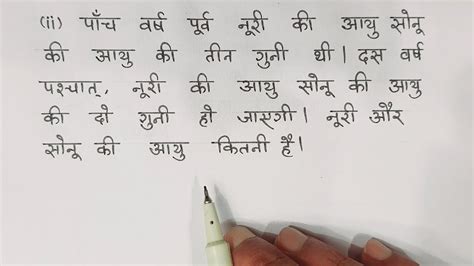 (ii) पाँच वर्ष पूर्व नूरी की आयु सोनू
की आयु की तीन गुनी थी। दस वर्ष
पश्चात्, नूरी की आयु सोनू की आयु
की दो गुनी हो जाएगी। नूरी और
सोनू की आयु कितनी है।